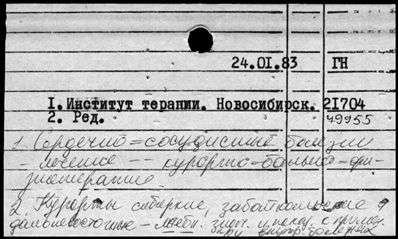 24.01.83 ГН
1. Институт терапии. Новосибирск. 21704
2. Ред. 49955
1. Сердечно=сосудистые болезни
- лечение -- курорто-бальнео-фи-
зиотерапия
2. Курорты сибирские, забайкальские
дальневосточные -